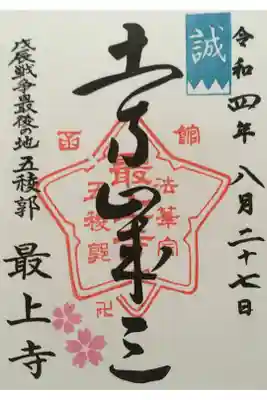 令和四年八月二十七日
誠
土方歳三
函館
法華宗
最上寺
五稜郭
卍
戊辰戦争最後の地
五稜郭
最上寺